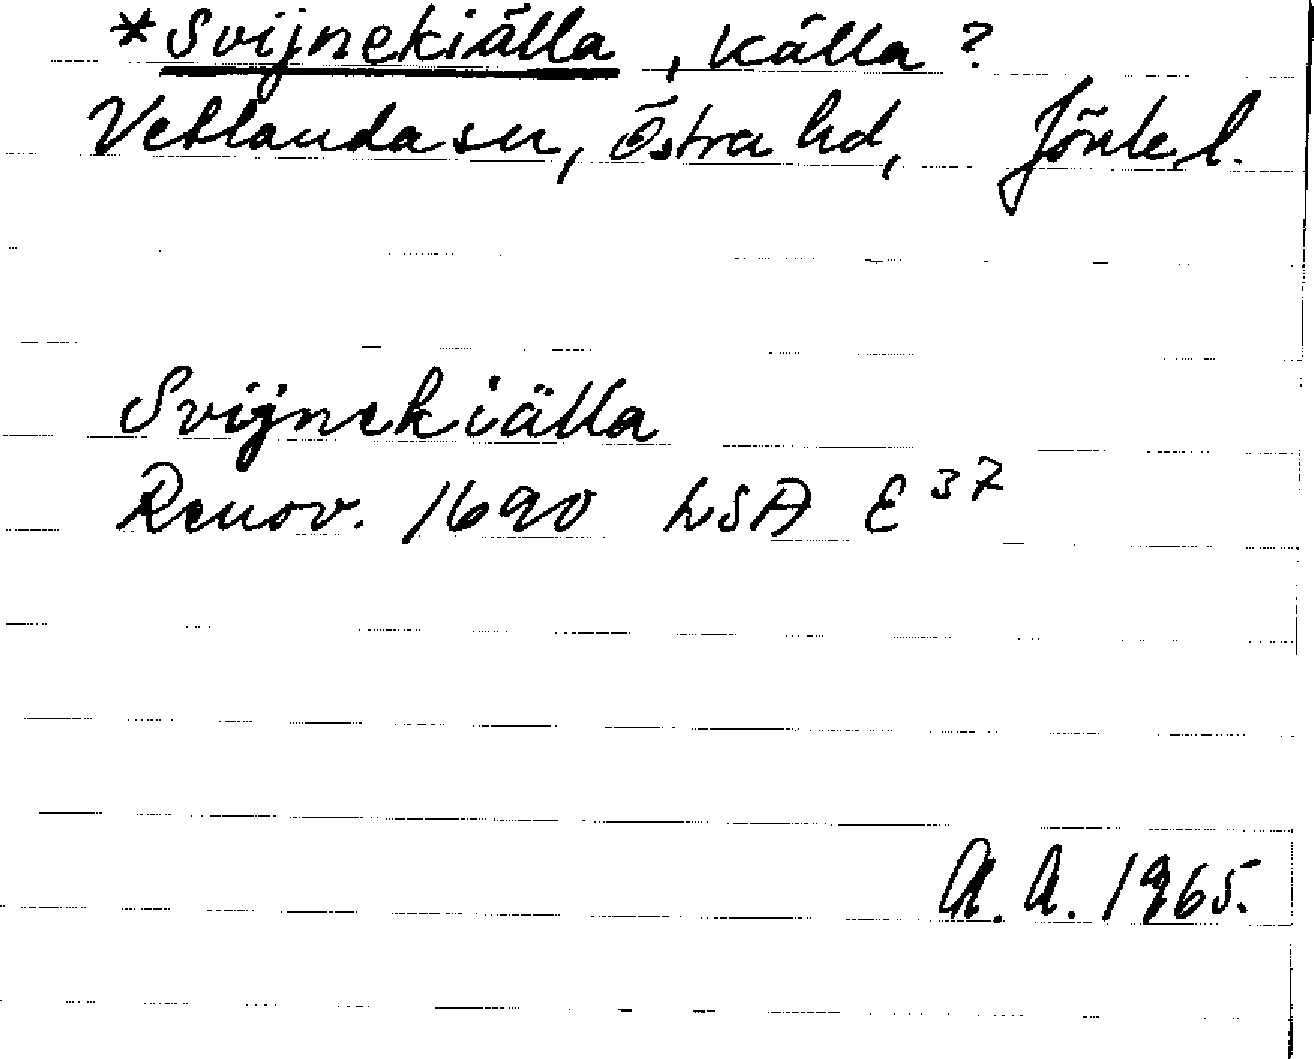 *Svijnekiälla, källa?
Vetlanda sn, Östra hd, Jönk. l.
Svijnekiälla
Renov. 1690 LSA E 37
A. A. 1965.